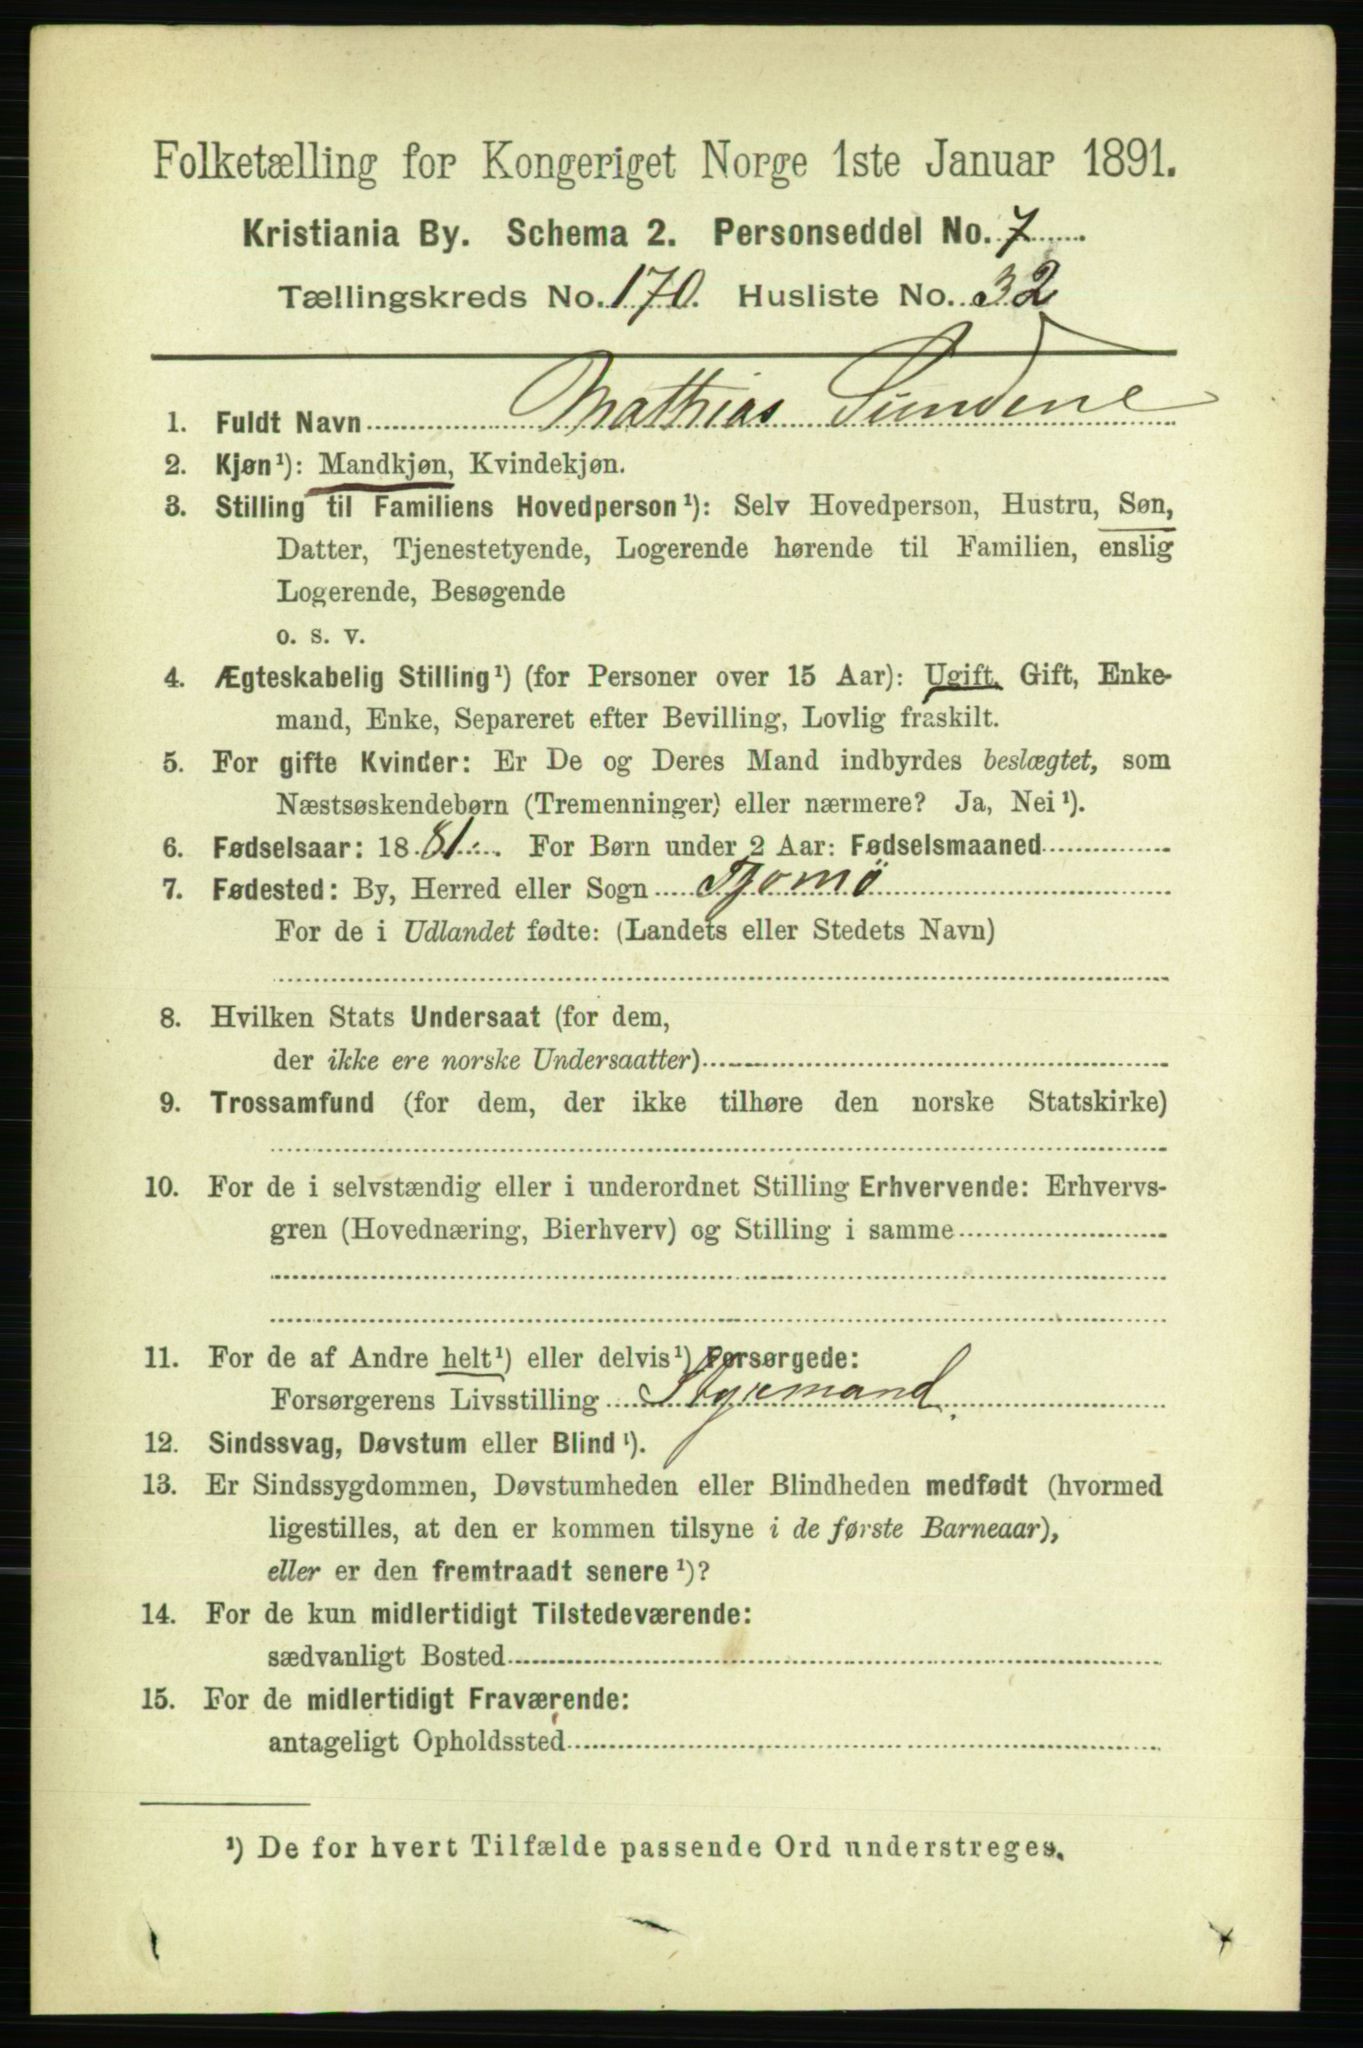 Folketælling for Kongeriget Norge 1ste Januar 1891.
Kristiania By. Schema 2. Personseddel No. 7
Tællingskreds No. 170. Husliste No. 32
1. Fuldt Navn Mathias Sundene
2. Kjøn¹): Mandkjøn, Kvindekjøn.
3. Stilling til Familiens Hovedperson¹): Selv Hovedperson, Hustru, Søn,
Datter, Tjenestetyende, Logerende hørende til Familien, enslig
Logerende, Besøgende
o. s. v.
4. Ægteskabelig Stilling¹) (for Personer over 15 Aar): Ugift, Gift, Enke-
mand, Enke, Separeret efter Bevilling, Lovlig fraskilt.
5. For gifte Kvinder: Er De og Deres Mand indbyrdes beslægtet, som
Næstsøskendebørn (Tremenninger) eller nærmere? Ja, Nei¹).
6. Fødselsaar: 1881. For Børn under 2 Aar: Fødselsmaaned
7. Fødested: By, Herred eller Sogn Tjømö
For de i Udlandet fødte: (Landets eller Stedets Navn)
8. Hvilken Stats Undersaat (for dem,
der ikke ere norske Undersaatter)
9. Trossamfund (for dem, der ikke tilhøre den norske Statskirke)
10. For de i selvstændig eller i underordnet Stilling Erhvervende: Erhvervs-
gren (Hovednæring, Bierhverv) og Stilling i samme
11. For de af Andre helt¹) eller delvis¹) Forsørgede:
Forsørgerens Livsstilling Styrmand.
12. Sindssvag, Døvstum eller Blind¹).
13. Er Sindssygdommen, Døvstumheden eller Blindheden medfødt (hvormed
ligestilles, at den er kommen tilsyne i de første Barneaar),
eller er den fremtraadt senere¹)?
14. For de kun midlertidigt Tilstedeværende:
sædvanligt Bosted
15. For de midlertidigt Fraværende:
antageligt Opholdssted
¹) De for hvert Tilfælde passende Ord understreges.